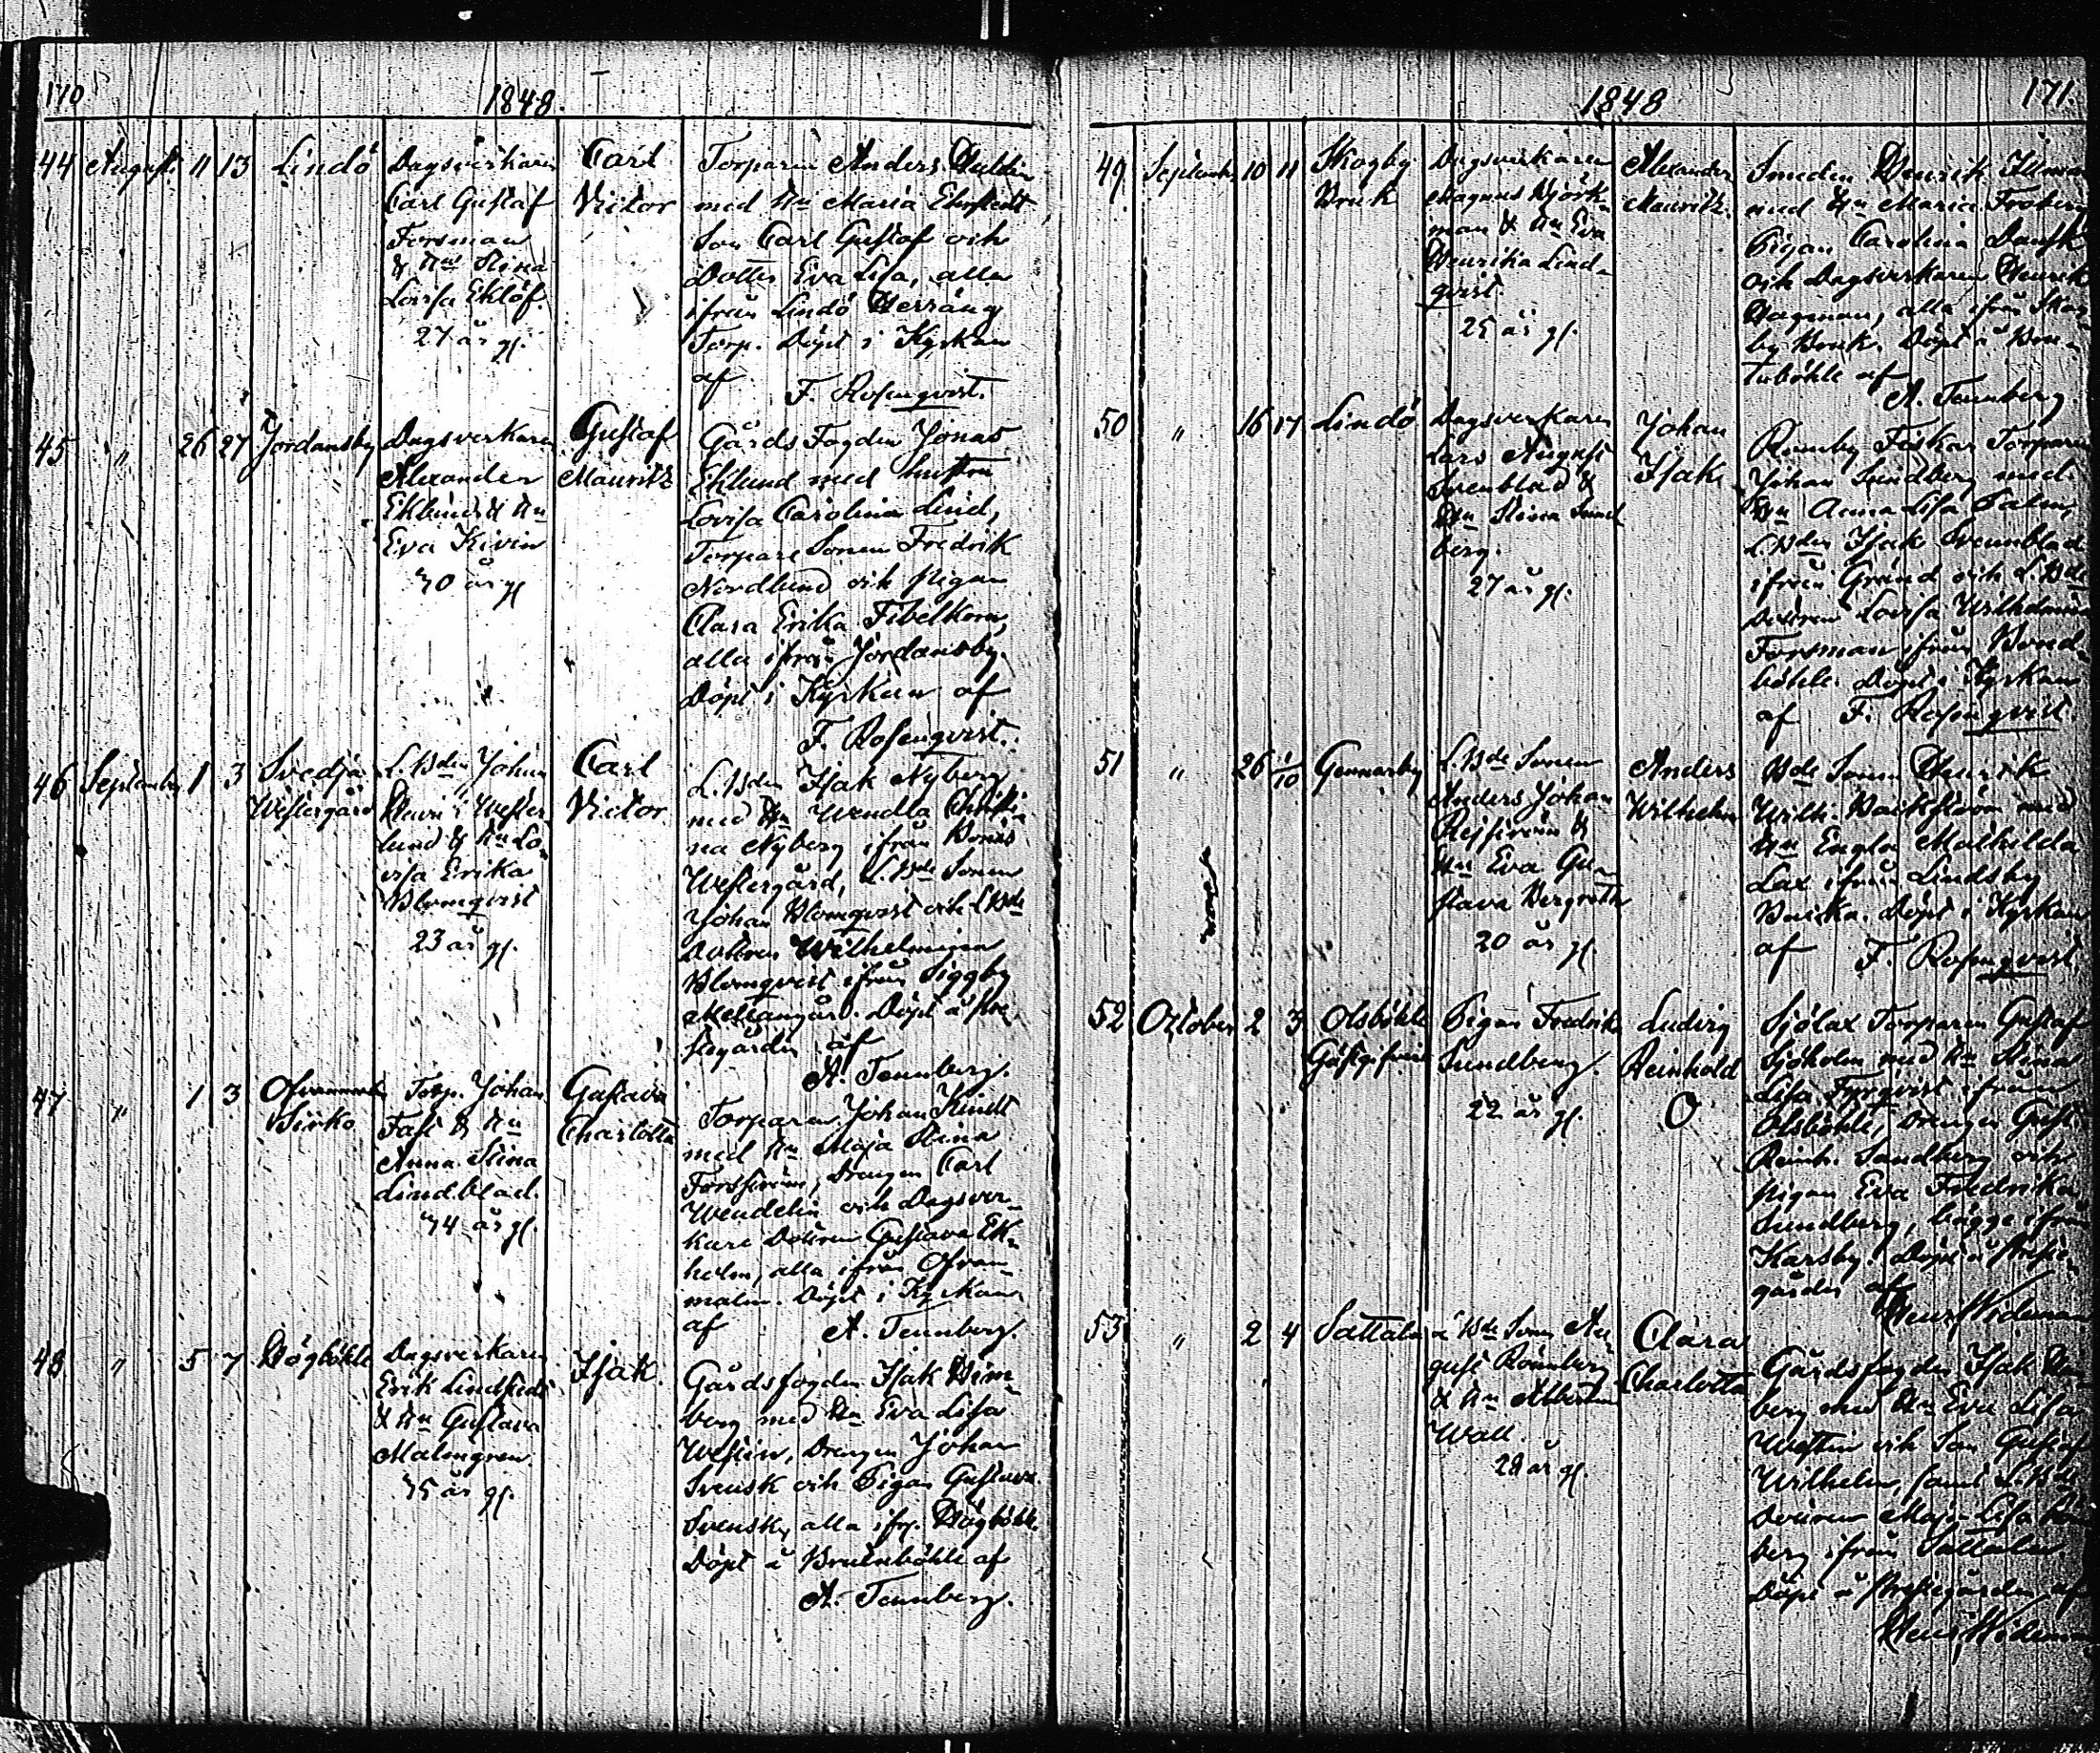 170
1848.
44 August 11 13 Lindö
Dagsverkaren
Carl Gustaf
Forsman
& Hu Stina
Lovisa Eklöf.
27 år gl.
Carl
Victor
Torparen Anders
med Hu Maria
Son Carl Gustaf och
Dotter Eva Lisa, alla
ifrån Lindö Herräng
Torp. Döpt i Kyrkan
af
F. Rosenqvist.
45 " 26 27 Jordansby
Dagsverkaren
Alexander
Eklund & Hu
Eva Kivin
40 år gl
Gustaf
Mauritz
Gårds Fogden Jonas
Eklund med hustru
Lovisa Carolina Lind,
Torpare Sonen Fredrik
Nordlund och pigan
Clara Erika Fibelkorn,
alla ifrån Jordansby.
Döpt i Kyrkan af
F. Rosenqvist.
46 September 1 3 Svedja
Westergård
L.Bden Johan
Henric Wester-
lund & Hu Lo-
visa Erika
Blomqvist
23 år gl.
Carl
Victor
L.Bden Isak Nyberg
med Hu Wendla Christi-
na Nyberg ifrån
Westergård, L.Bde Sonen
Johan Blomqvist och LBde
Dottren Wilhelmina
Blomqvist ifrån Siggby
Mellangård. Döpt å Pre-
stgården af
A. Tennberg.
47 " 1 3 Ofvanmalm
Sirko
Torp. Johan
Fast & Hu
Anna Stina
Lindblad.
44 år gl.
Gustava
Charlotta
Torparen Johan Kindt
med Hu Maja Stina
Forsström, Drengen Carl
Wendelin och Dagsver-
kare Dottren Gustava Ek-
holm, alla ifrån Ofvan-
malm. Döpt i Kyrkan
af
A. Tennberg.
48 " 5 7 Högböhle
Dagsverkaren
Erik Lindstedt
& Hu Gustava
Malmgren
45 år gl.
Isak.
Gårdsfogden Isak
berg med Hu Eva Lisa
Westin, Drengen Johan
Svensk och Pigan Gustava
Svensk, alla ifr. Högböhle.
Döpt å Brunnböhle af
A. Tennberg.
171.
1848
49 September 10 11 Skogby
Bruk
Dagsverkaren
Magnus Björk-
man & Hu Eva
Henrika Lind-
qvist.
25 år gl.
Alexander
Mauritz.
Smeden Henrik
med Hu Maria Froberg
Pigan Carolina Dansk
och Dagsverkaren Henrik
Hagman, alla ifrån Skog-
by Bruk. Döpt å
af
A. Tennberg.
50 " 16 17 Lindö
Dagsverkaren
Lars August
Svenblad &
Hu Stina Sund-
berg.
27 år gl.
Johan
Isak
Rumby Torparen
Johan Sundberg med
Hu Anna Lisa Palm,
L.Bden Isak Svenblad
ifrån Gränd och L.Bde
Dottren Lovisa Wilhelmina
Forsman ifrån Bond-
böhle. Döpt i Kyrkan
af F. Rosenqvist.
51 " 26 1/10 Gennarby
L.Bde Sonen
Anders Johan
& 
Hu Eva Gu-
stava Bergroth
20 år gl.
Anders
Wilhelm
Bde Sonen Henrik
Wilh. Backström med
Hu Engla Mathilda
Lax ifrån Lindsby
Backa. Döpt i Kyrkan
af F. Rosenqvist
52 October 2 3 Olsböhle
Gästgifveri
Pigan Fredrika
Sundberg.
22 år gl.
Ludvig
Reinhold
O
Sjölax Torparen Gustaf
Sjöholm med Hu Stina
Lisa Fyrqvist ifrån
Olsböhle, Drengen Gust.
Reinh. Sundberg och
pigan Eva Fredrika
Sundberg, bägge ifrån
Karsby. Döpt å Preste-
gården af
Henr. Wideman
53 " 2 4 Sattala
L Bde Son Au-
gust Rönnberg
& Hu Albertina
Wall.
28 år gl.
Clara
Charlotta
Gårdsfogden Isak
berg med Hu Eva Lisa
Westin och Son Gustaf
Wilhelm, samt L.Bde
Dottren Maja Lisa
berg ifrån Sattala
Döpt å Prestegården af
Henr. Wideman